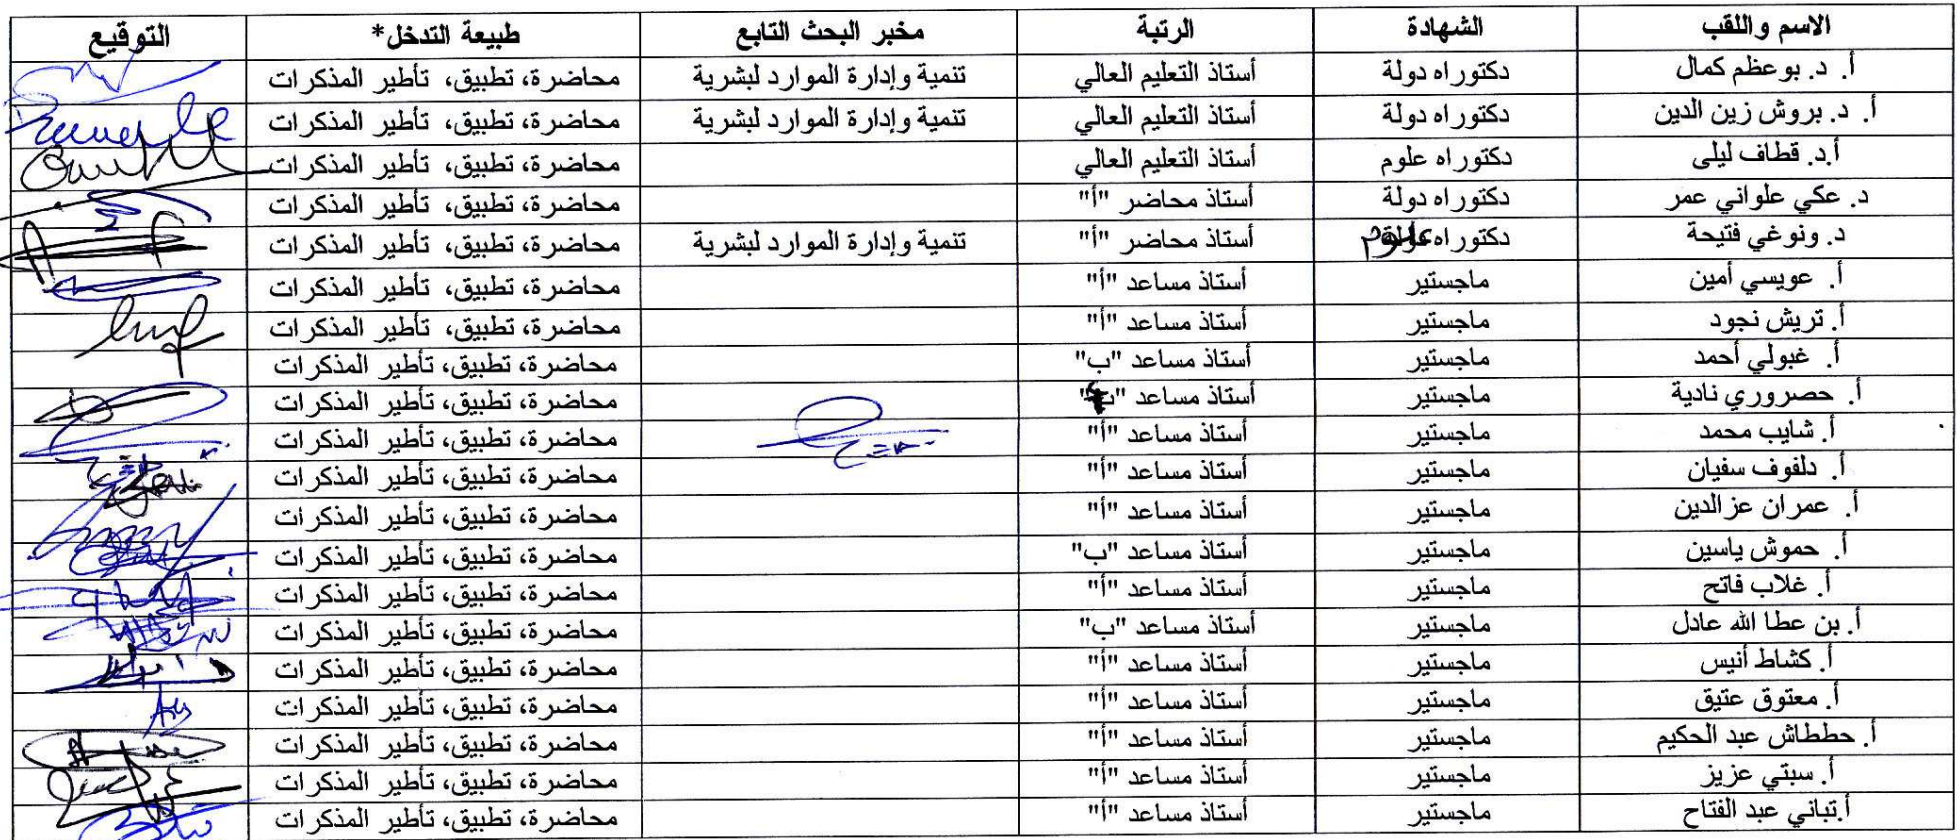 الاسم واللقب الشهادة الرتبة مخبر البحث التابع طبيعة التدخل* التوقيع
أ. د. بوعظم كمال دكتوراه دولة أستاذ التعليم العالي تنمية وإدارة الموارد لبشرية محاضرة، تطبيق، تأطير المذكرات
أ. د. بروش زين الدين دكتوراه دولة أستاذ التعليم العالي تنمية وإدارة الموارد لبشرية محاضرة، تطبيق، تأطير المذكرات
أ.د. قطاف ليلى دكتوراه علوم أستاذ التعليم العالي محاضرة، تطبيق، تأطير المذكرات
د. عكي علواني عمر دكتوراه دولة أستاذ محاضر "أ" محاضرة، تطبيق، تأطير المذكرات
د. ونوغي فتيحة دكتوراه علوم أستاذ محاضر "أ" تنمية وإدارة الموارد لبشرية محاضرة، تطبيق، تأطير المذكرات
أ. عويسي أمين ماجستير أستاذ مساعد "أ" محاضرة، تطبيق، تأطير المذكرات
أ. تريش نجود ماجستير أستاذ مساعد "أ" محاضرة، تطبيق، تأطير المذكرات
أ. غبولي أحمد ماجستير أستاذ مساعد "ب" محاضرة، تطبيق، تأطير المذكرات
أ. حصروري نادية ماجستير أستاذ مساعد محاضرة، تطبيق، تأطير المذكرات
أ. شايب محمد ماجستير أستاذ مساعد "أ" محاضرة، تطبيق، تأطير المذكرات
أ. دلفوف سفيان ماجستير أستاذ مساعد "أ" محاضرة، تطبيق، تأطير المذكرات
أ. عمران عزالدين ماجستير أستاذ مساعد "أ" محاضرة، تطبيق، تأطير المذكرات
أ. حموش ياسين ماجستير أستاذ مساعد "ب" محاضرة، تطبيق، تأطير المذكرات
أ. غلاب فاتح ماجستير أستاذ مساعد "أ" محاضرة، تطبيق، تأطير المذكرات
أ. بن عطا الله عادل ماجستير أستاذ مساعد "ب" محاضرة، تطبيق، تأطير المذكرات
أ. كشاط أنيس ماجستير أستاذ مساعد "أ" محاضرة، تطبيق، تأطير المذكرات
أ. معتوق عتيق ماجستير أستاذ مساعد "أ" محاضرة، تطبيق، تأطير المذكرات
أ. حططاش عبد الحكيم ماجستير أستاذ مساعد "أ" محاضرة، تطبيق، تأطير المذكرات
أ. سبتي عزيز ماجستير أستاذ مساعد "أ" محاضرة، تطبيق، تأطير المذكرات
أ.تباني عبد الفتاح ماجستير أستاذ مساعد "أ" محاضرة، تطبيق، تأطير المذكرات